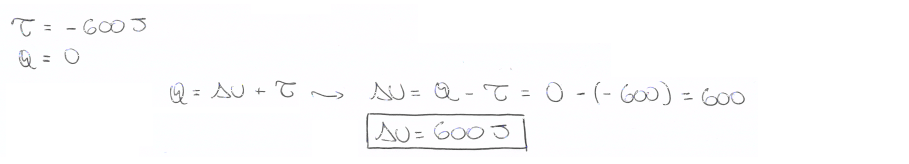 τ = -600 J
Q = 0
Q = ΔU + τ ⤳ ΔU = Q - τ = 0 - (-600) = 600
ΔU = 600 J